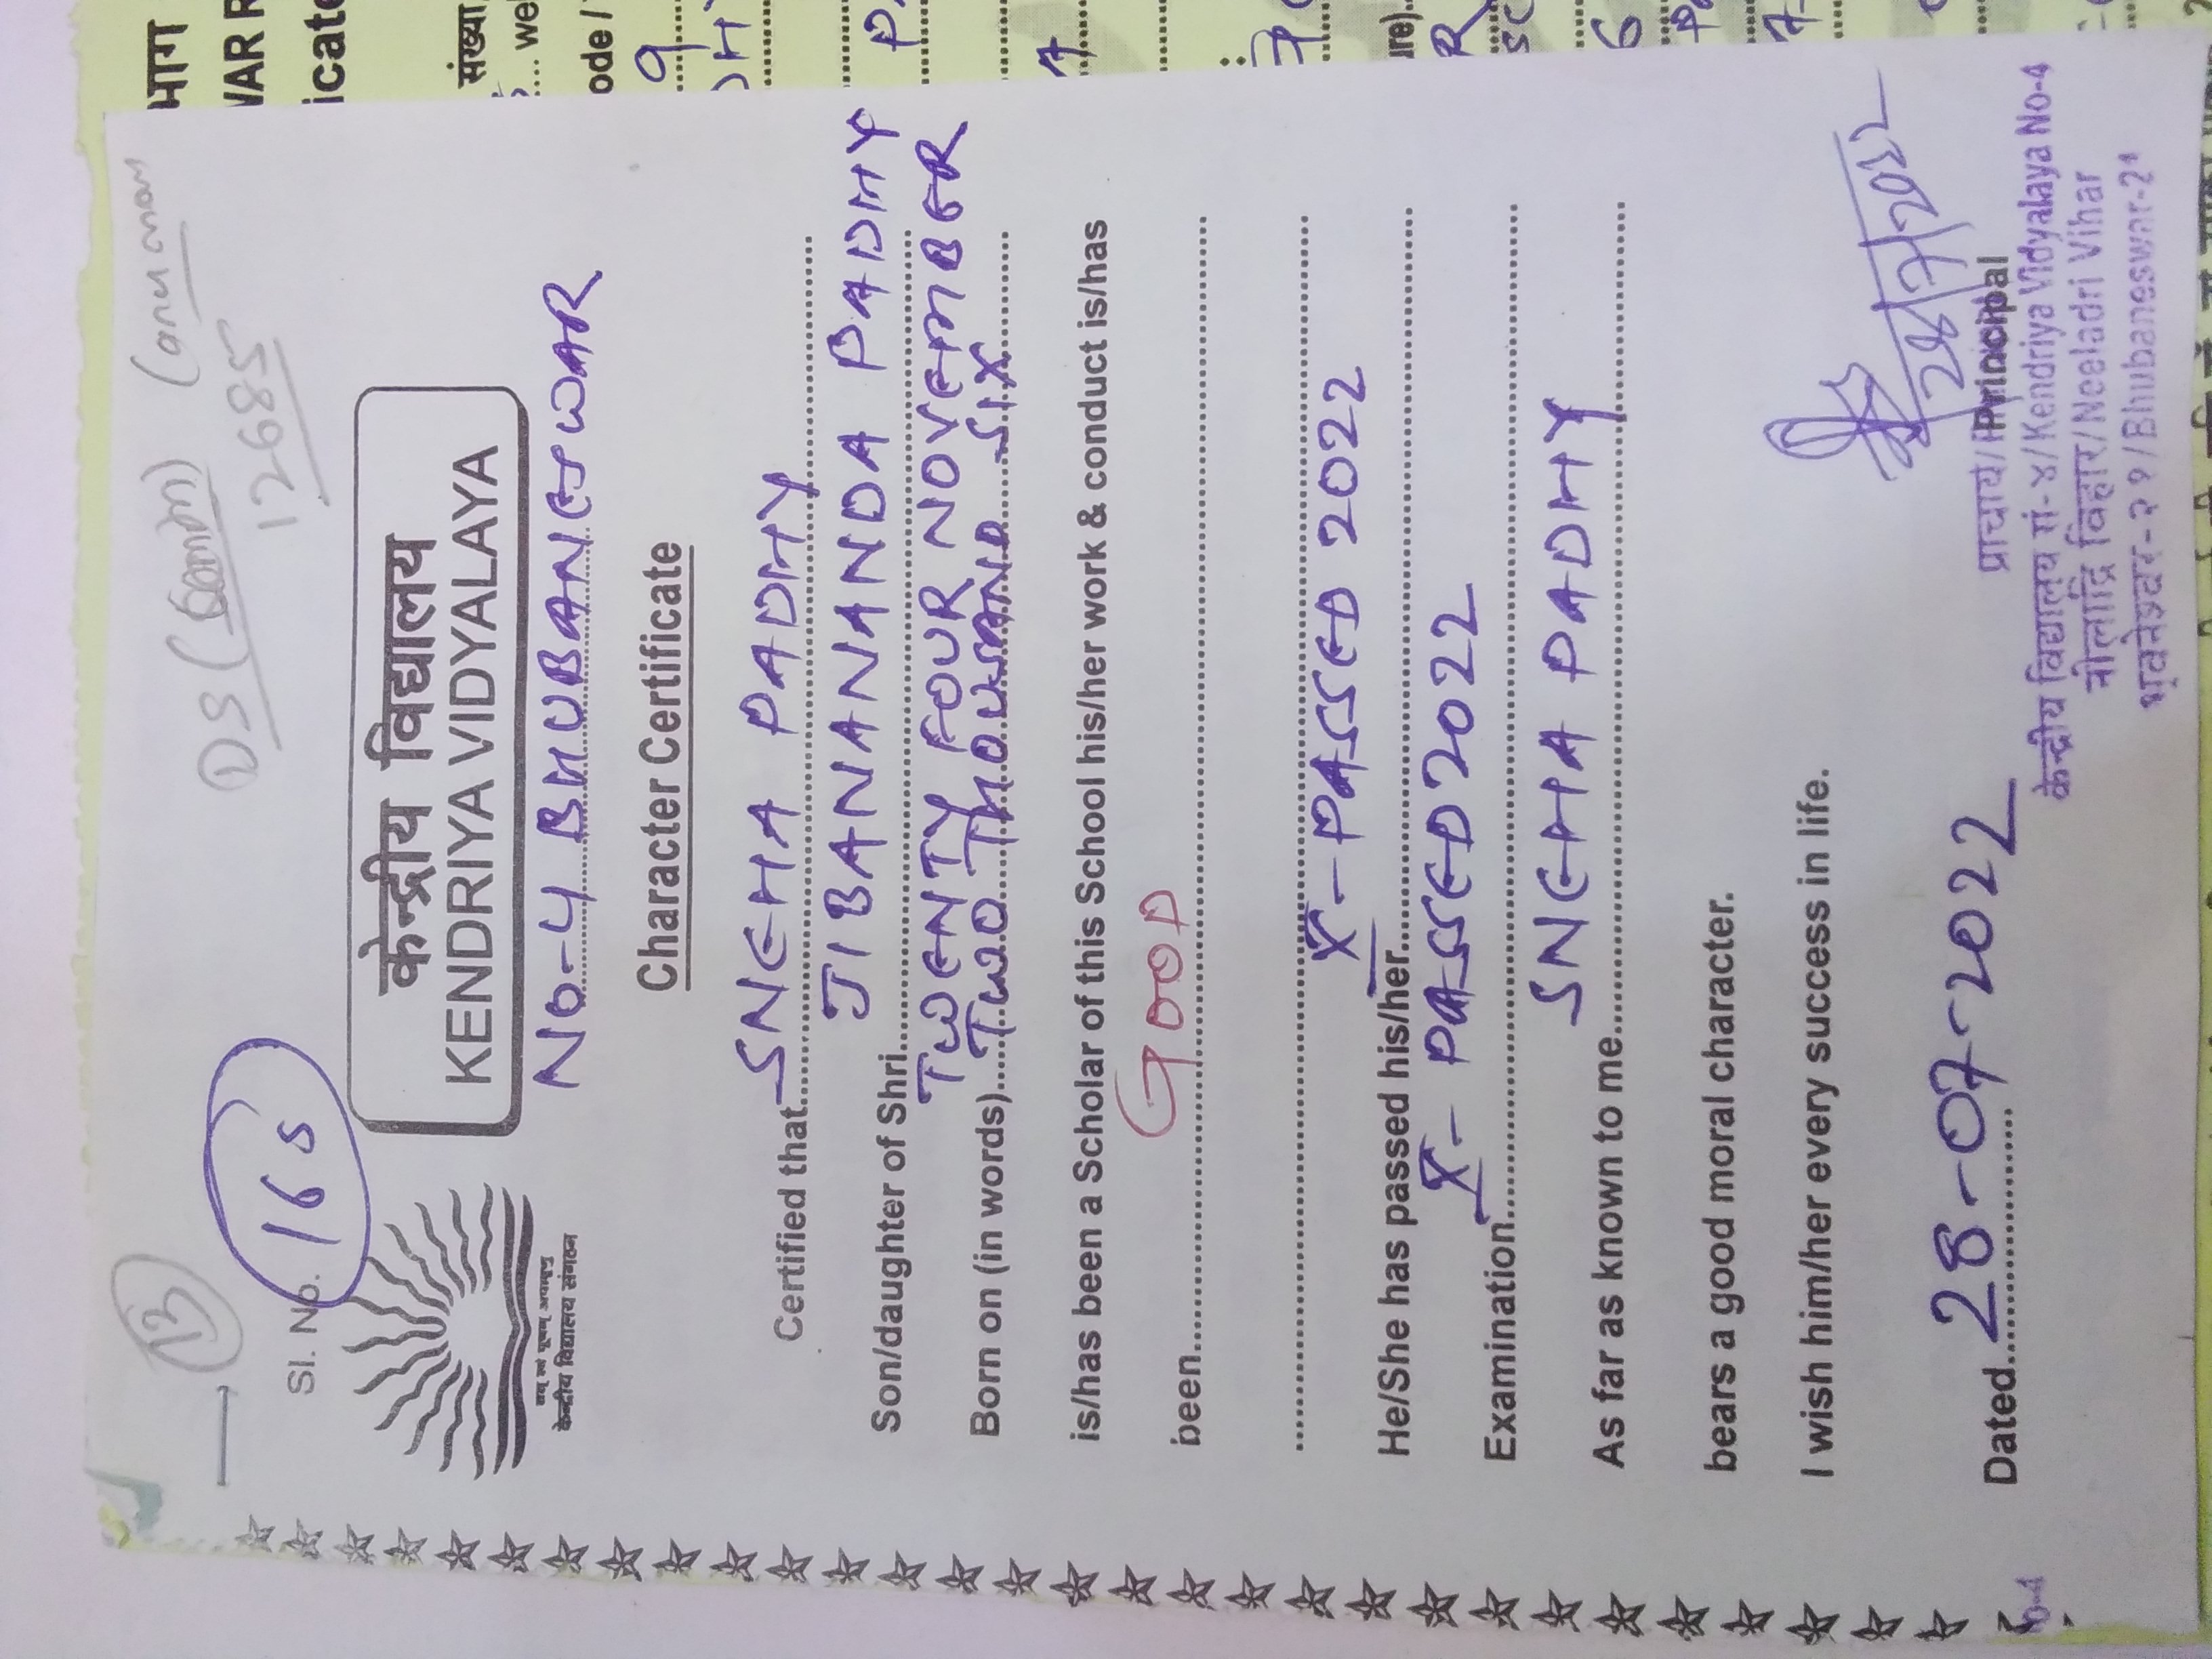 DS
12685
13
Sl. No. 165
केन्द्रीय विद्यालय
KENDRIYA VIDYALAYA
केन्द्रीय विद्यालय संगठन
No-4 BHUBANESWAR
Character Certificate
Certified that SNEHA PADHY
Son/daughter of Shri JIBANANDA PADHY
TWENTY FOUR NOVEMBER
Born on (in words) TWO THOUSAND SIX
is/has been a Scholar of this School his/her work & conduct is/has
been GOOD
X - PASSED 2022
He/She has passed his/her
X - PASSED 2022
Examination
As far as known to me SNEHA PADHY
bears a good moral character.
I wish him/her every success in life.
28/7/2022
Dated 28-07-2022
Principal
प्राचार्य/Principal
केन्द्रीय विद्यालय सं-४/Kendriya Vidyalaya No-4
नीलाद्रि विहार/Neeladri Vihar
भुवनेश्वर-२१/Bhubaneswar-21
भाग
संख्या